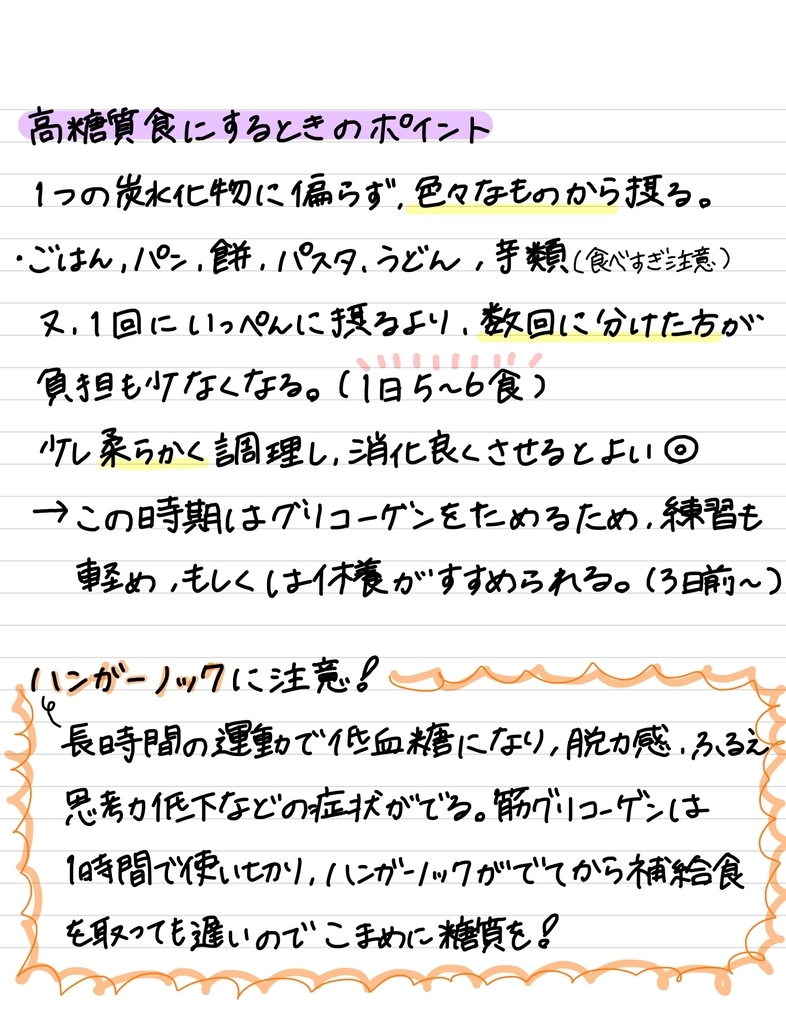 高糖質食にするときのポイント
1つの炭水化物に偏らず、色々なものから摂る。
・ごはん、パン、餅、パスタ、うどん、芋類(食べすぎ注意)
又、1回にいっぺんに摂るより、数回に分けた方が
負担も少なくなる。(1日5〜6食)
少し柔らかく調理し、消化良くさせるとよい◎
→この時期はグリコーゲンをためるため、練習も
軽め、もしくは休養がすすめられる。(3日前〜)
ハンガーノックに注意!
長時間の運動で低血糖になり、脱力感、ふるえ
思考力低下などの症状がでる。筋グリコーゲンは
1時間で使い切り、ハンガーノックがでてから補給食
を取っても遅いのでこまめに糖質を!